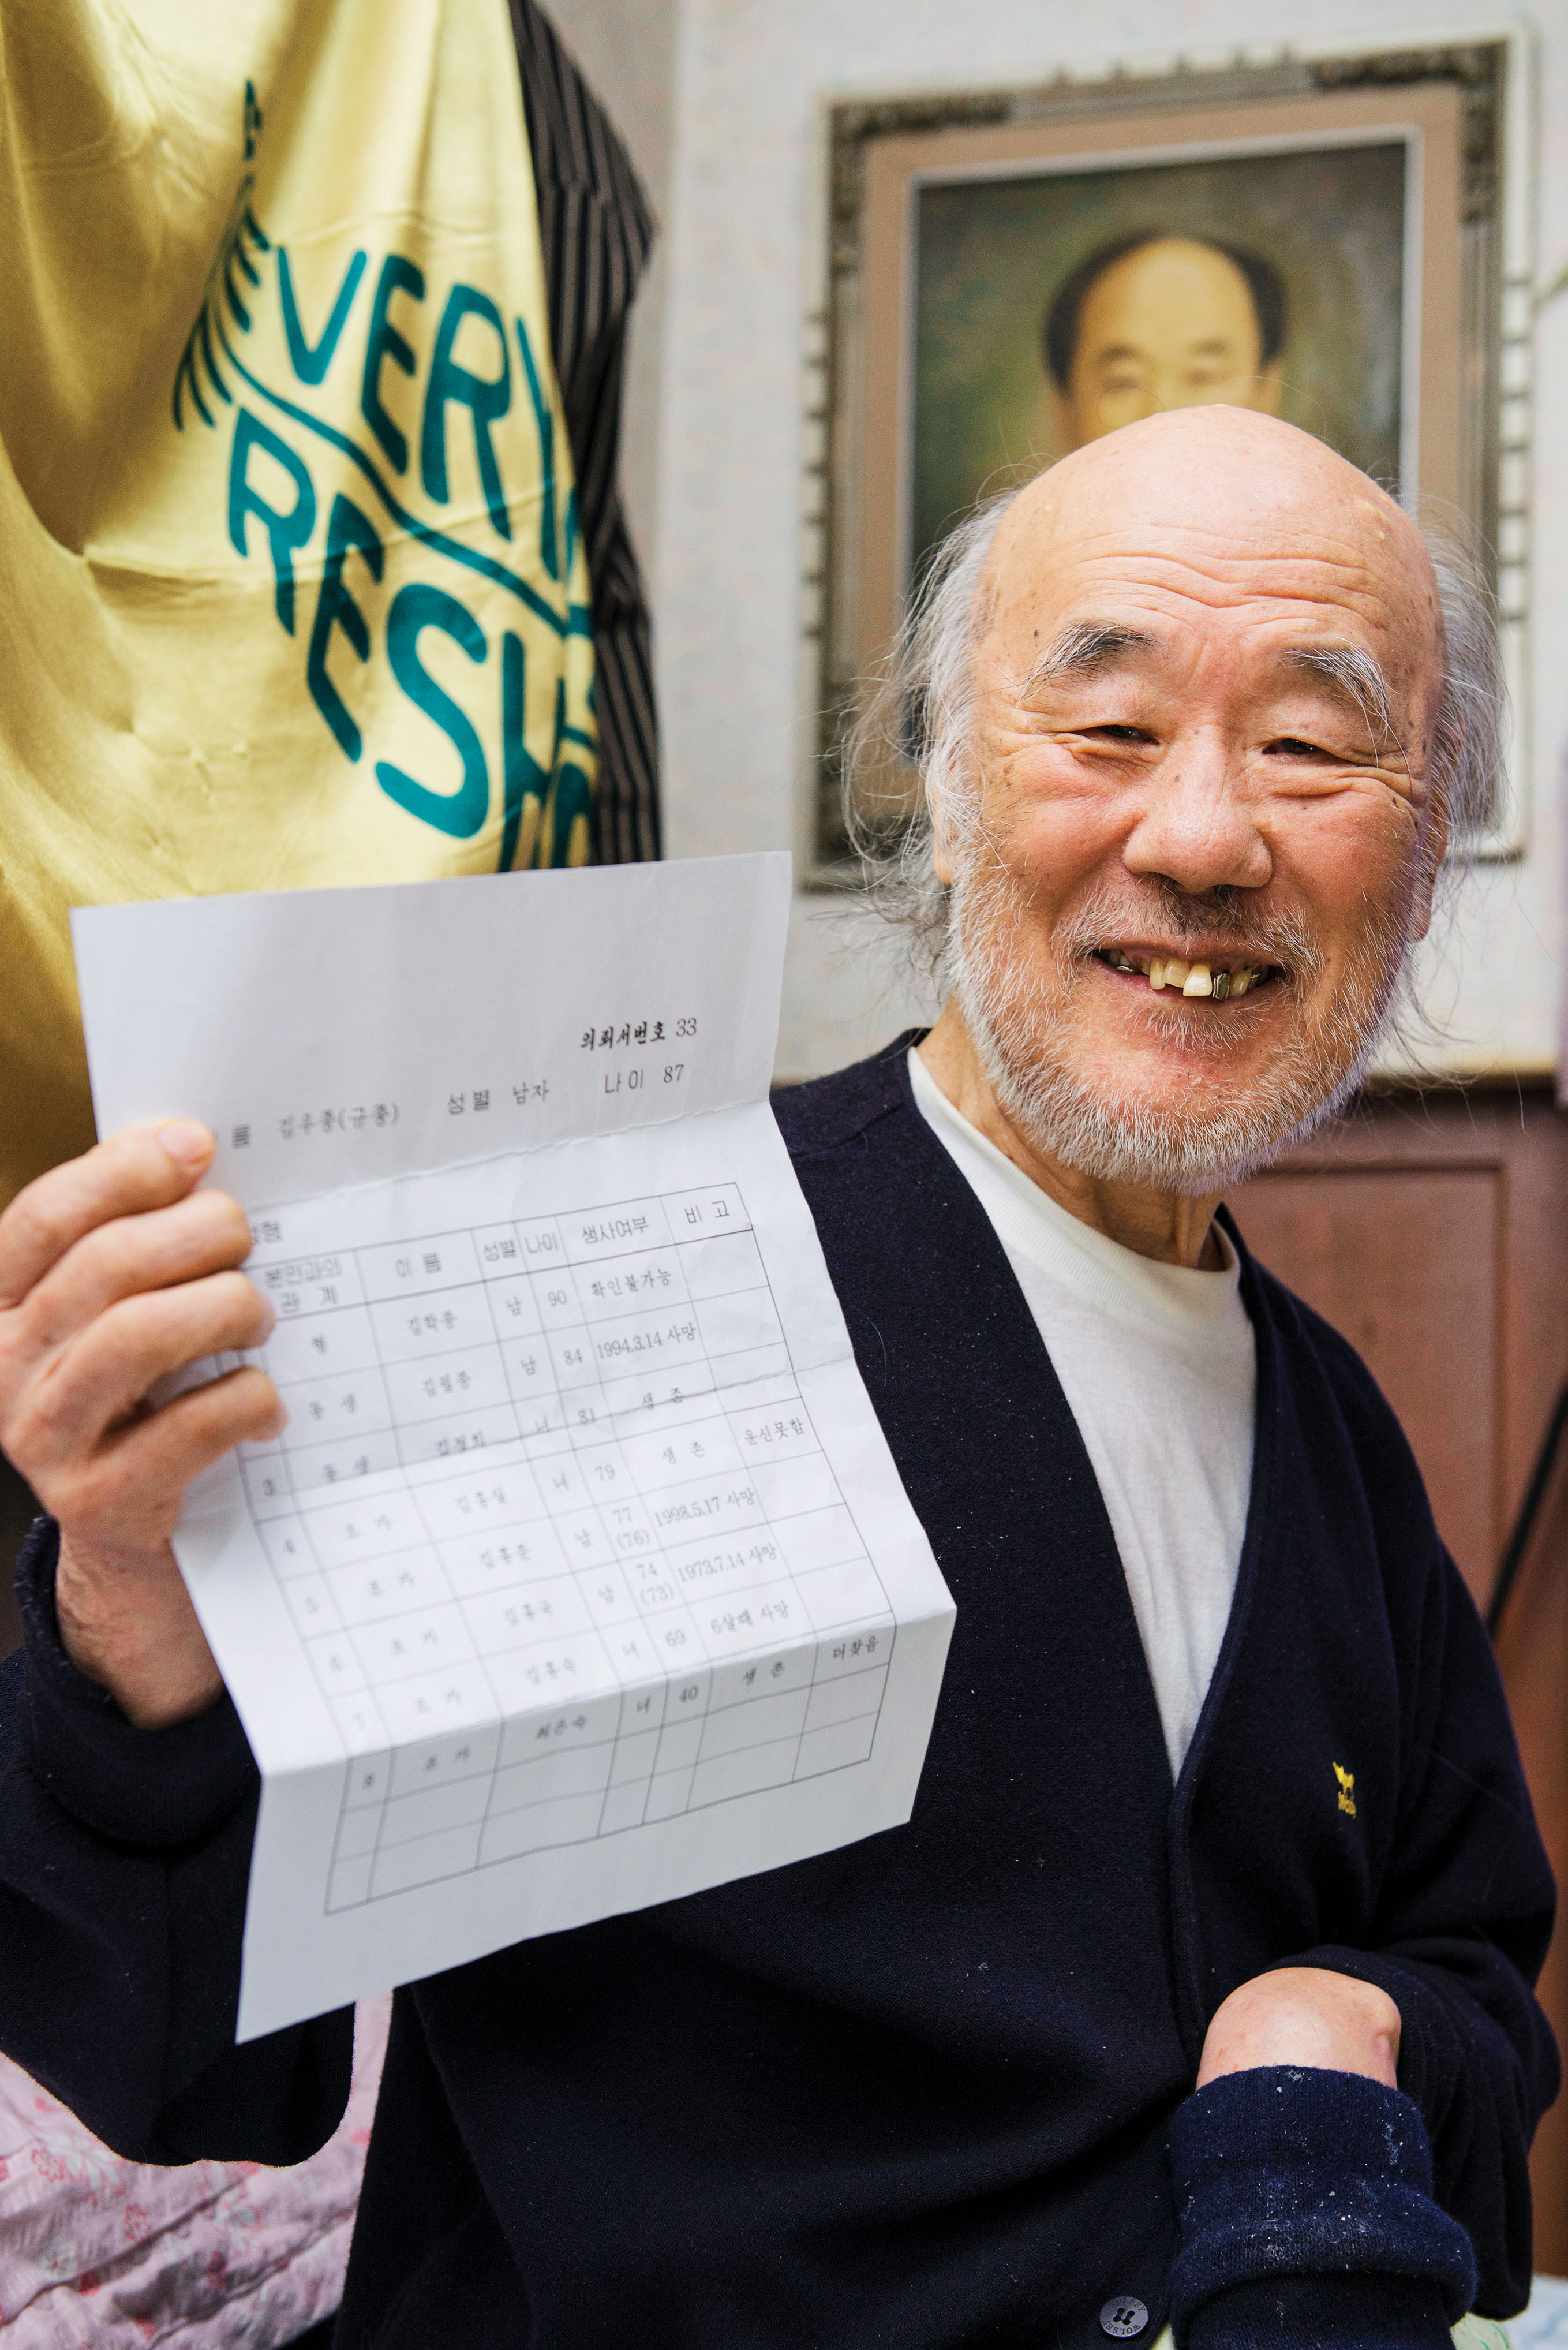 VERY
RESH
의뢰서번호 33
름 김우종(규종) 성별 남자 나이 87
본인과의 관계 이름 성별 나이 생사여부 비고
형 김학종 남 90 확인불가능
동생 김월종 남 84 1994.3.14 사망
3 동생 녀 81 생존
4 조카 김홍실 녀 79 생존 운신못함
5 조카 김홍준 남 77(76) 1998.5.17 사망
6 조카 김홍국 남 74(73) 1973.7.14 사망
7 조카 김홍숙 녀 69 6살때 사망
8 조카 최은숙 녀 40 생존 더찾음